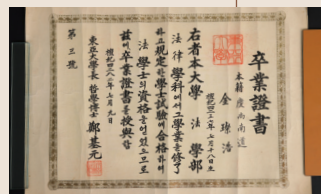 卒業證書
本籍 慶尚南道
金璨浩
檀紀四二六二年七月十八日生
右者本大學 法學部
法律學科에서 그 學業을 修了
하고 規定한 學士試驗에 合格하여
法學士의 資格을 얻었으므로
玆에 卒業證書를 授與함
檀紀四二八六年七月九日
東亞大學長 哲學博士 鄭基元
第三號